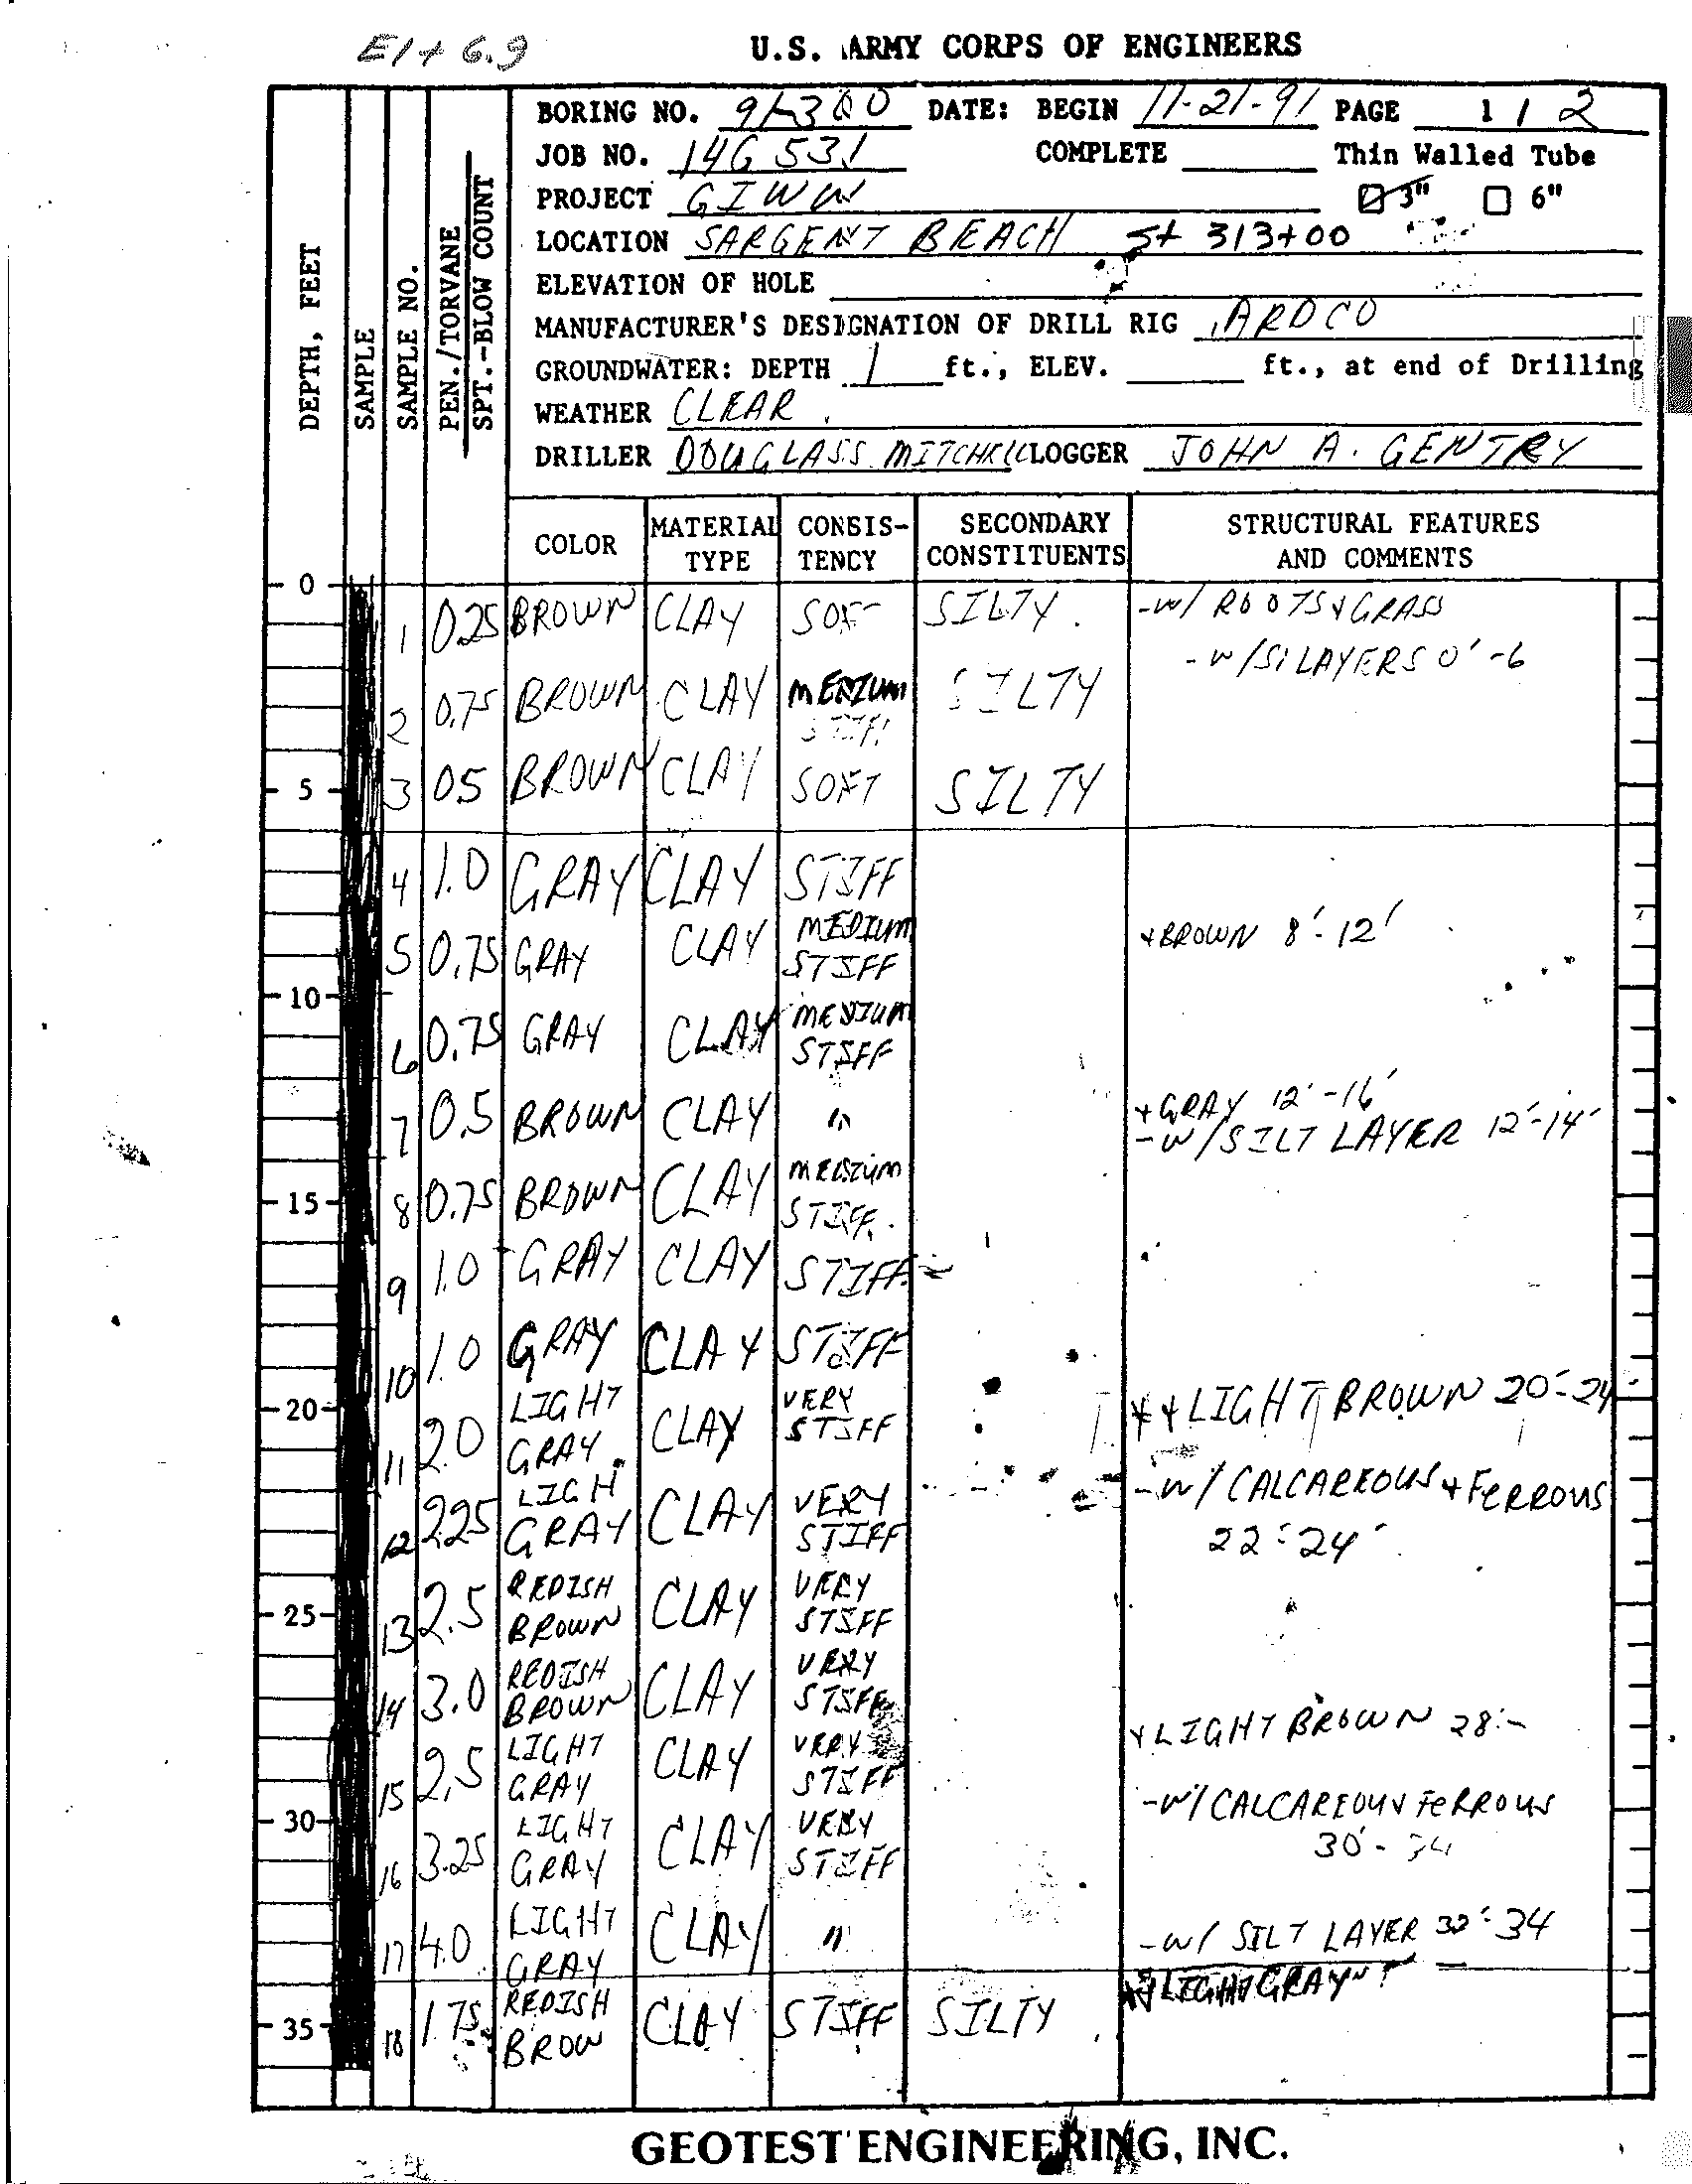 El + 6.9
U.S. ARMY CORPS OF ENGINEERS
BORING NO. 91-300 DATE: BEGIN 11-21-91 PAGE 1 / 2
JOB NO. 14G 531 COMPLETE Thin Walled Tube
PROJECT GIWW 3" 6"
LOCATION SARGENT BEACH St 313+00
ELEVATION OF HOLE
MANUFACTURER'S DESIGNATION OF DRILL RIG ARDCO
GROUNDWATER: DEPTH 1 ft., ELEV. ft., at end of Drilling
WEATHER CLEAR
DRILLER DOUGLASS MITCHELL LOGGER JOHN A. GENTRY
DEPTH, FEET
SAMPLE
SAMPLE NO.
PEN./TORVANE
SPT.-BLOW COUNT
COLOR MATERIAL TYPE CONSIS-TENCY SECONDARY CONSTITUENTS STRUCTURAL FEATURES AND COMMENTS
0
1 0.25 BROWN CLAY SOFT SILTY -W/ ROOTS & GRASS
-W/SI LAYERS 0'-6
2 0.75 BROWN CLAY MEDIUM STIFF SILTY
5
3 05 BROWN CLAY SOFT SILTY
4 1.0 GRAY CLAY STIFF
5 0.75 GRAY CLAY MEDIUM STIFF +BROWN 8'-12'
10
6 0.75 GRAY CLAY MEDIUM STIFF
7 0.5 BROWN CLAY " +GRAY 12'-16'
-W/SILT LAYER 12'-14'
15
8 0.75 BROWN CLAY MEDIUM STIFF
9 1.0 GRAY CLAY STIFF
10 1.0 GRAY CLAY STIFF
20
11 2.0 LIGHT GRAY CLAY VERY STIFF + LIGHT BROWN 20'-24
12 2.25 LIGH GRAY CLAY VERY STIFF -W/ CALCAREOUS + FERROUS
22'-24'
25
13 2.5 REDISH BROWN CLAY VERY STIFF
14 3.0 REDISH BROWN CLAY VERY STIFF
15 2.5 LIGHT GRAY CLAY VERY STIFF + LIGHT BROWN 28'-
30
-W/ CALCAREOUS + FERROUS
30'-34
16 3.25 LIGHT GRAY CLAY VERY STIFF
17 4.0 LIGHT GRAY CLAY " -W/ SILT LAYER 32'-34
+LIGHT GRAY
35
18 1.75 REDISH BROW CLAY STIFF SILTY
GEOTEST ENGINEERING, INC.